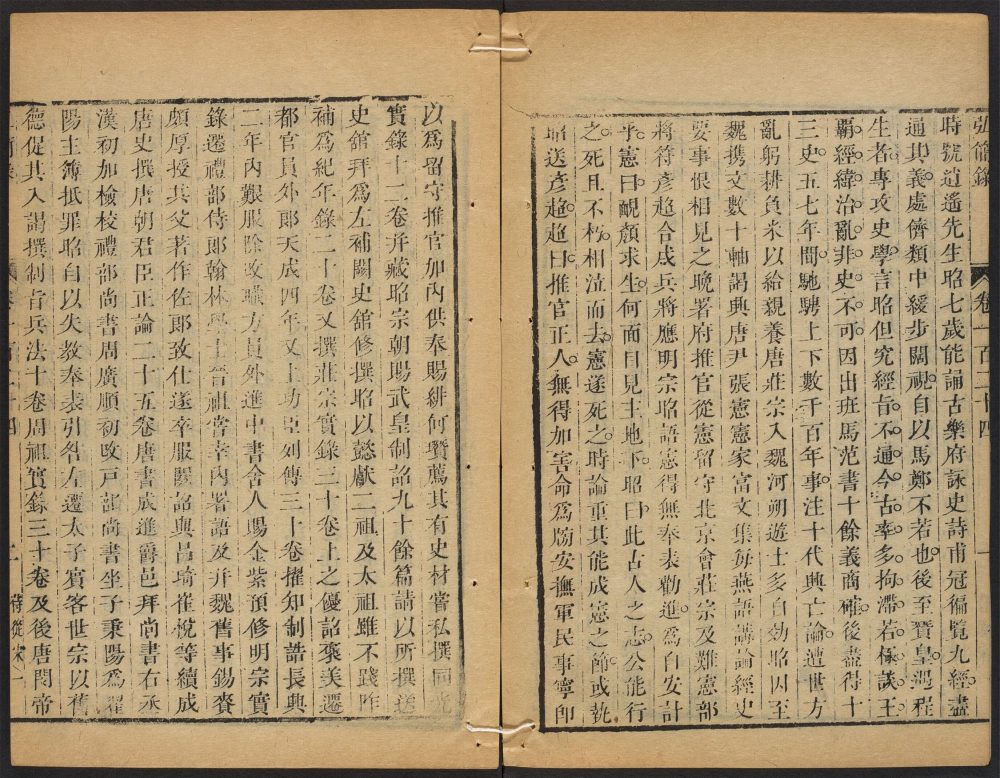 弘簡錄 卷一百二十四 一
時號逍遙先生昭七歲能誦古樂府詠史詩甫冠徧覽九經盡
通其義處儕類中緩步闊視自以馬鄭不若也後至贊皇遇程
生者專攻史學言昭但究經旨不通今古率多拘滯若極談王
霸經緯治亂非史不可因出班馬范書十餘義商確後盡得十
三史五七年間馳騁上下數千百年事注十代興亡論遭世方
亂躬耕負米以給親養唐莊宗入魏河朔遊士多自効昭因至
魏携文數十軸謁興唐尹張憲憲家富文集每燕語講論經史
要事恨相見之晚署府推官從憲留守北京會莊宗及難憲部
將符彥超合戍兵將應明宗昭語憲得無奉表勸進為自安計
乎憲曰靦顏求生何面目見主地下昭曰此古人之志公能行
之死且不朽相泣而去憲遂死之時論重其能成憲之節或執
昭送彥超超曰推官正人無得加害命為牓安撫軍民事寧即
以為留守推官加內供奉賜緋何瓚薦其有史材嘗私撰同光
實錄十二卷并藏昭宗朝賜武皇制詔九十餘篇請以所撰送
史舘拜為左補闕史舘修撰昭以懿獻二祖及太祖雖不踐阼
補為紀年錄二十卷又撰莊宗實錄三十卷上之優詔褒美遷
都官員外郎天成四年又上功臣列傳三十卷擢知制誥長興
二年內艱服除改職方員外進中書舍人賜金紫預修明宗實
錄遷禮部侍郎翰林學士晉祖嘗幸內署語及并魏舊事錫賚
頗厚授其父著作佐郎致仕遂卒服闋詔與呂琦崔悅等續成
唐史撰唐朝君臣正論二十五卷唐書成進爵邑拜尚書右丞
漢初加檢校禮部尚書周廣順初改戶部尚書坐子秉陽為
陽主簿抵罪昭自以失教奉表引咎左遷太子賓客世宗以舊
德促其入謁撰制旨兵法十卷周祖實錄三十卷及後唐閔帝
卷一百二十四 二